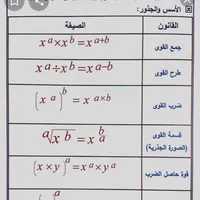 الأسس والجذور:
القانون الصيغة
جمع القوى x^a × x^b = x^{a+b}
طرح القوى x^a ÷ x^b = x^{a−b}
ضرب القوى (x^a)^b = x^{a×b}
قسمة القوى
(الصورة الجذرية) ᵃ√(x^b) = x^{b/a}
قوة حاصل الضرب (x × y)^a = x^a × y^a